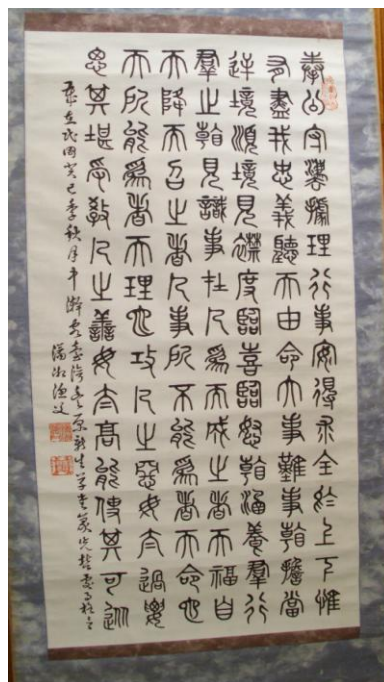 奉公守禮據理行事安得求全於上下惟
有盡我忠義聽天由命大事難事看擔當
逆境順境見襟度臨喜臨怒看涵養羣行
羣止看見識事在人為而成之者天福自
天降而召之者人事所不能為者天命也
天所能為者天理也攻人之惡毋太過要
思其堪受教人之善毋太高能使其可訓
歲在民國癸巳季秋月 臺灣 原新生學 先哲處事格言
瀟湘漁父